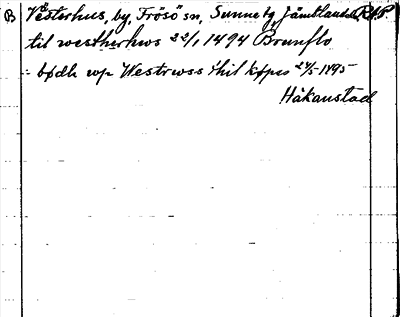 B Västerhus, by, Frösö sn, Sunne tg, Jämtlands RAP.
til westherhws 22/1 1494 Brunflo
: bødh wp Westrwss thil køps 24/5-1495
Håkanstad